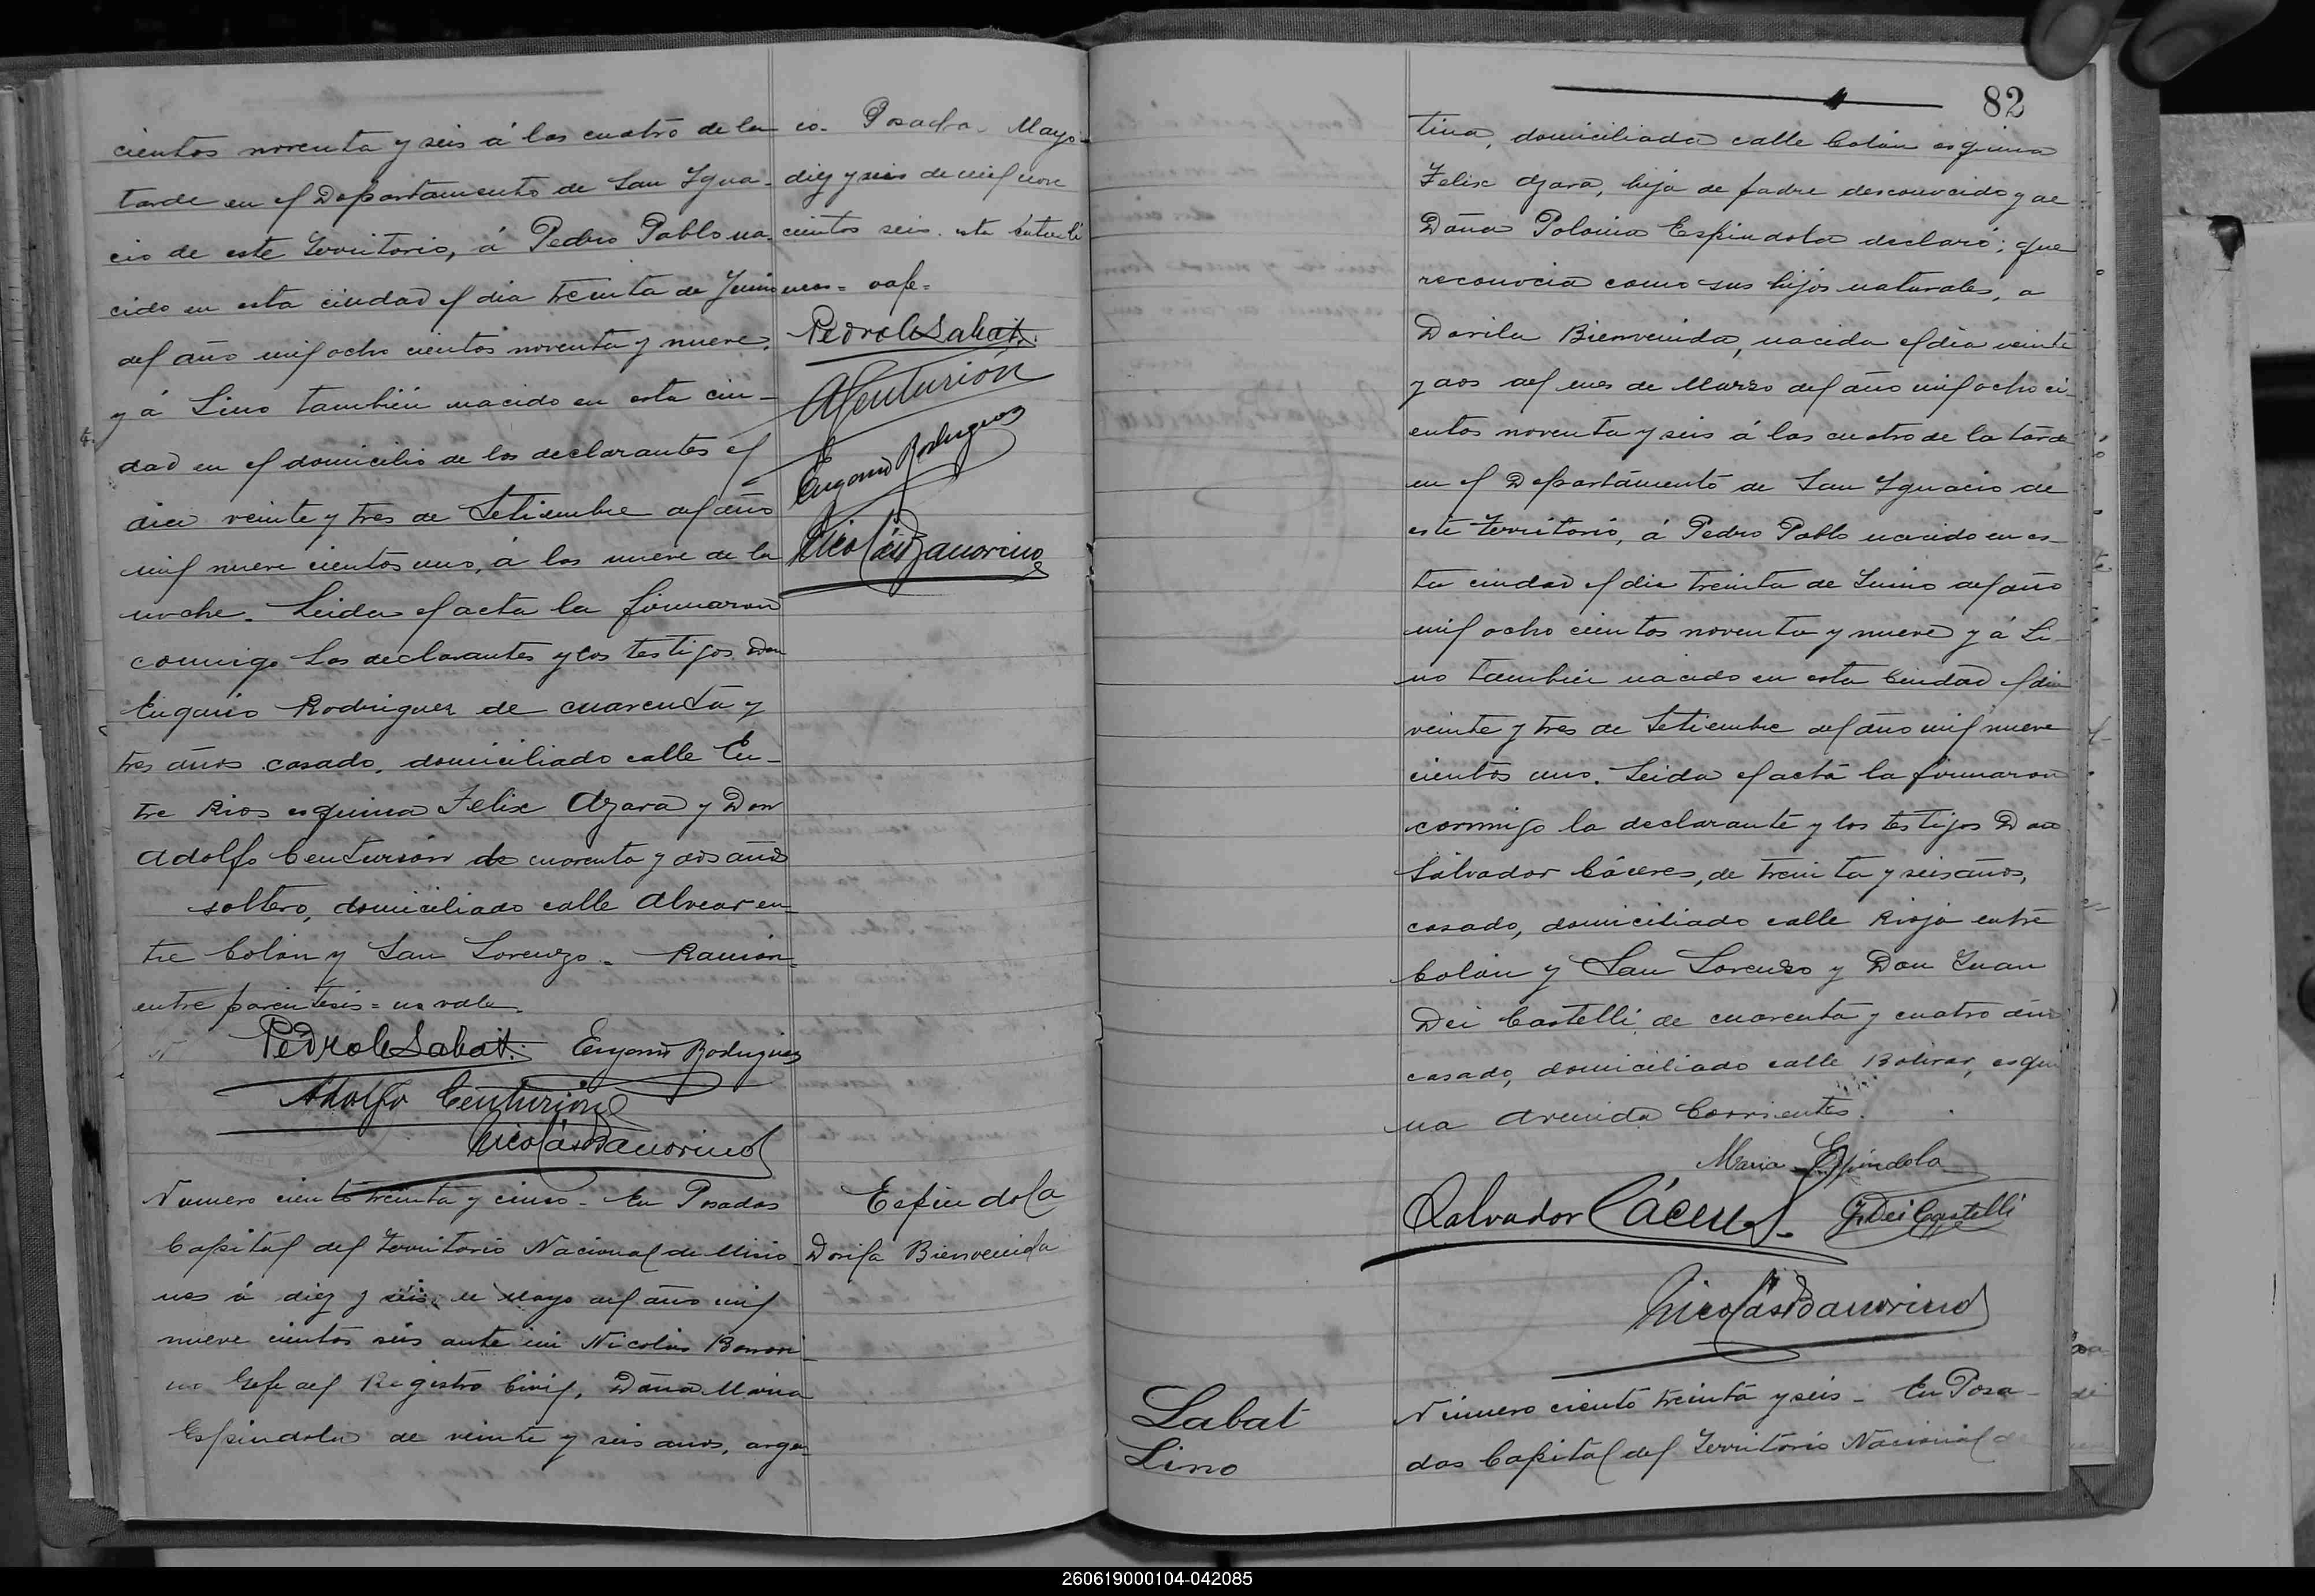 cientos noventa y seis á las cuatro de la
tarde en el Departamento de San Igna-
cio de este Territorio, á Pedro Pablo na-
cido en esta ciudad el dia treinta de Junio
del año mil ocho cientos noventa y nueve,
y á Lino tambien nacido en esta ciu-
dad en el domicilio de los declarantes el
dia veinte y tres de Setiembre del año
mil nueve cientos uno, á las nueve de la
noche. Leida el acta la firmaron
conmigo los declarantes y los testigos Don
Eugenio Rodriguez de cuarenta y
tres años casado, domiciliado calle En-
tre Rios esquina Felix Azara y Don
Adolfo Centurión de cuarenta y dos años
soltero, domiciliado calle Alvear en-
tre Colón y San Lorenzo. Ramón=
entre parentesis = no vale.
Pedro C Labat. Eugenio Rodriguez
Adolfo Centurion
Nicolás Bonorino
co. Posadas Mayo
diez y seis de mil nove
cientos seis. esta entre li
neas = vale =
Pedro C Labat.
A Centurion
Eugenio Rodriguez
Nicolás Bonorino
Numero ciento treinta y cinco - En Posadas
Capital del Territorio Nacional de Misio
nes á diez y seis de Mayo del año mil
nueve cientos seis ante mi Nicolás Bonori-
no Gefe del Registro Civil, Doña Maria
Espindola de veinte y seis años, argen
Espindola
Dorila Bienvenida
82
tina, domiciliada calle Colón esquina
Felix Azara, hija de padre desconocido y de
Doña Polonia Espindola declaró; que
reconocia como sus hijos naturales, a
Dorila Bienvenida, nacida el dia veinte
y dos del mes de Marzo del año mil ocho ci-
entos noventa y seis á las cuatro de la tarde
en el Departamento de San Ignacio de
este Territorio, á Pedro Pablo nacido en es-
ta ciudad el dia treinta de Junio del año
mil ocho cientos noventa y nueve y á Li-
no tambien nacido en esta Ciudad el dia
veinte y tres de Setiembre del año mil nueve
cientos uno. Leida el acta la firmaron
conmigo la declarante y los testigos Don
Salvador Cáceres, de treinta y seis años,
casado, domiciliado calle Rioja entre
Colón y San Lorenzo y Don Juan
Dei Castelli de cuarenta y cuatro años
casado, domiciliado calle Bolivar, esqui
na Avenida Corrientes.
Maria Espindola
Salvador Cáceres. J. Dei Castelli
Nicolás Bonorino
Labat
Lino
Número ciento treinta y seis - En Posa-
das Capital del Territorio Nacional de
260619000104-042085